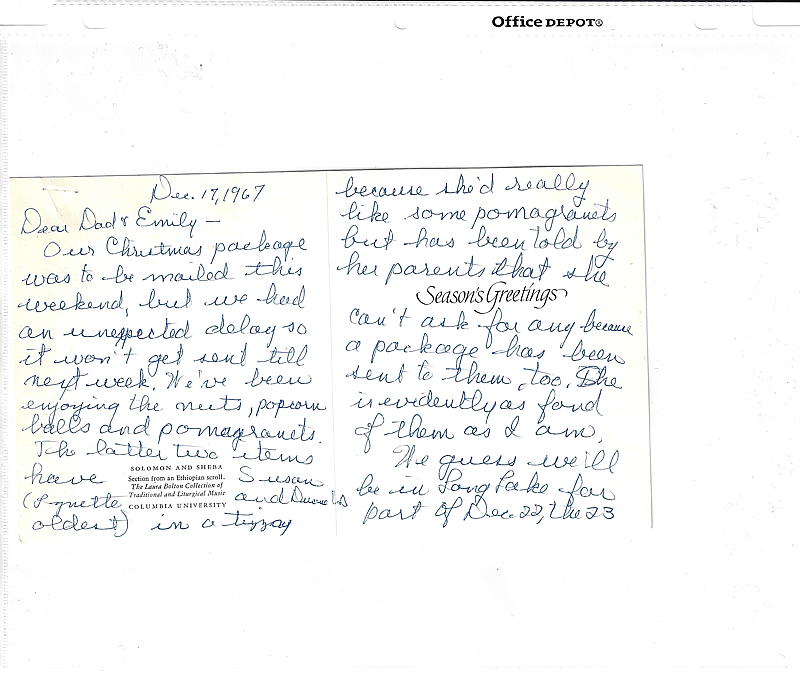 Office DEPOT®
Dec. 17, 1967
Dear Dad & Emily —
Our Christmas package
was to be mailed this
weekend, but we had
an unexpected delay so
it won't get sent till
next week. We've been
enjoying the nuts, popcorn
balls and pomagranets.
The latter two items
have Susan
(Lynette and Duane's
oldest) in a tizzy
SOLOMON AND SHEBA
Section from an Ethiopian scroll.
The Laura Bolton Collection of
Traditional and Liturgical Music
COLUMBIA UNIVERSITY
because she'd really
like some pomagranets
but has been told by
her parents that she
Season's Greetings
can't ask for any because
a package has been
sent to them, too. She
is evidently as fond
of them as I am.
We guess we'll
be in Long Lake for
part of Dec. 22, the 23